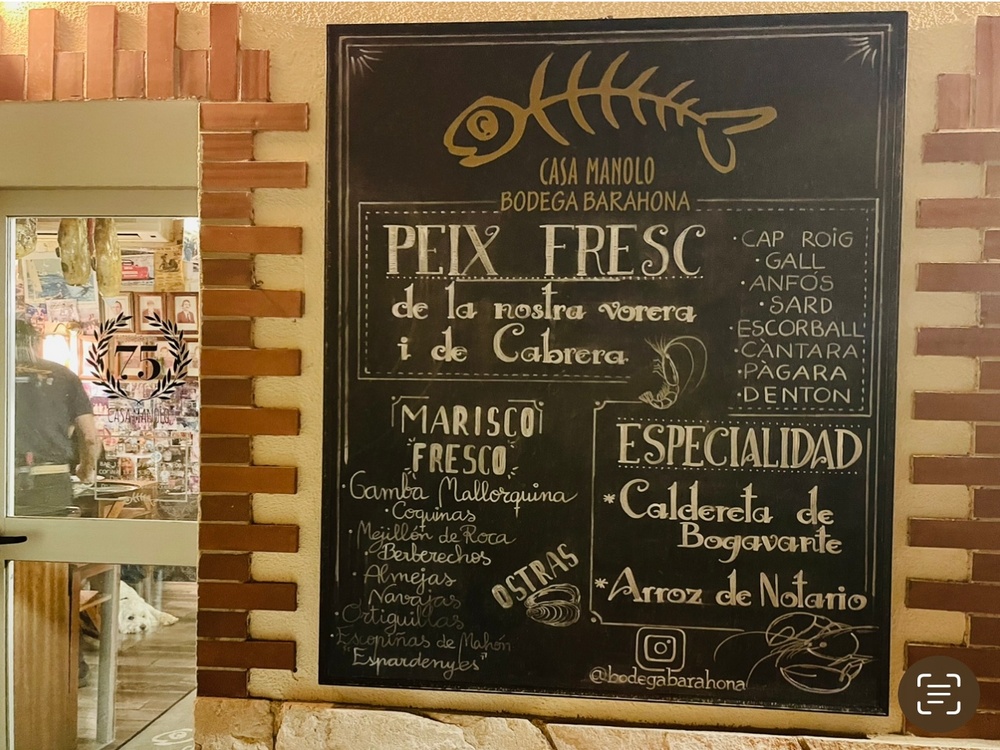 CASA MANOLO
BODEGA BARAHONA
PEIX FRESC
de la nostra vorera
i de Cabrera
· CAP ROIG
· GALL
· ANFÓS
· SARD
· ESCORBALL
· CÀNTARA
· PÀGARA
· DENTON
MARISCO
FRESCO
· Gamba Mallorquina
· Coquinas
· Mejillón de Roca
· Berberechos
· Almejas
· Navajas
· Ortiguillas
· Escopiñas de Mahón
· "Espardenyes"
OSTRAS
ESPECIALIDAD
* Caldereta de
Bogavante
* Arroz de Notario
@bodegabarahona
75
CASA MANOLO